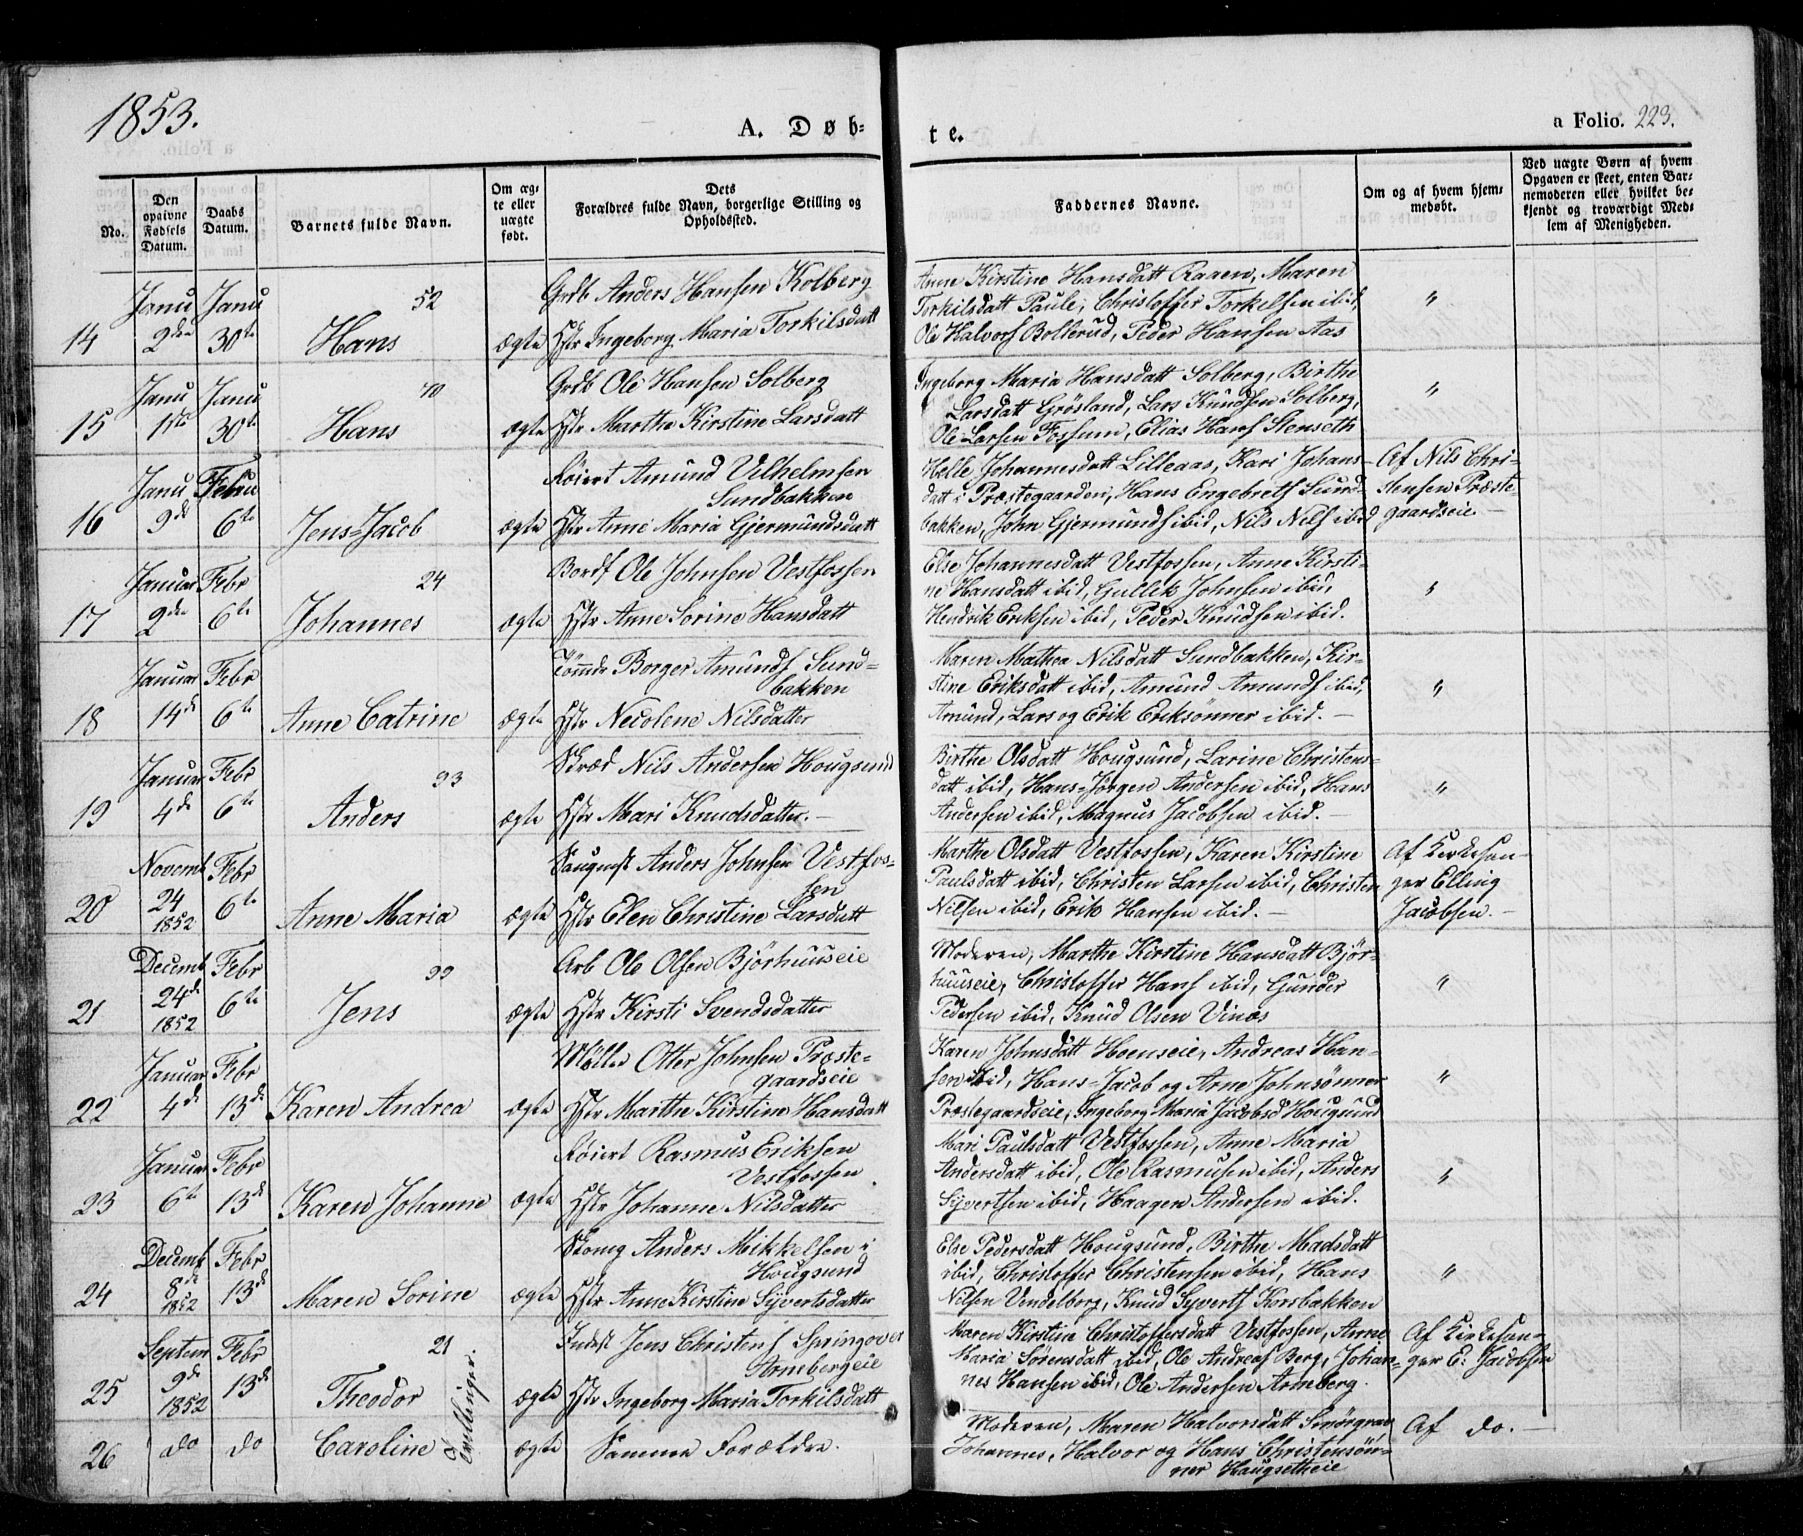 1853.
A. Døb-
te.
a Folio. 223.
No.
Den opgivne Fødsels Datum.
Daabs Datum.
Barnets fulde Navn.
Om ægte eller uægte født.
Dets Forældres fulde Navn, borgerlige Stilling og Opholdssted.
Faddernes Navne.
Om og af hvem hjemmedøbt.
Ved uægte Børn af hvem Opgaven er skeet, enten Barnemoderen eller hvilket bekjendt og troværdigt Medlem af Menigheden.
Janu Janu 52 Grdb Anders Hansen Kolberg
14 2den 30te Hans ægte Hstr Ingeborg Maria Torkilsdatt
Anne Kirstine Hansdatt Raaen, Maren
Torkilsdatt Paule, Christoffer Torkelsen ibid, "
Ole Halvors Bollerud, Peder Hansen Aas
Janu Janu 70 Grdb Ole Hansen Solberg
15 1ste 30te Hans ægte Hstr Marthe Kirstine Larsdatt
Ingeborg Maria Hansdatt Solberg, Birthe
Larsdatt Grøsland, Lars Knudsen Solberg, "
Ole Larsen Fossum, Elias Hans Stenseth
Janu Febru Røiert Amund Vilhelmsen
Sundbakken
16 9de 6te Jens-Jacob ægte Hstr Anne Maria Gjermundsdatt
Helle Johannesdatt Lilleaas, Kari Johans- Af Nils Chri-
datt i Præstegaarden, Hans Engebreth Sund- stensen Præste-
bakken, John Gjermunds ibid, Nils Nils ibid gaardseie.-
Januar Febr 24 Bords Ole Johnsen Vestfossen
17 2den 6te Johannes ægte Hstr Anne Sorine Hansdatt
Else Johannesdatt Vestfossen, Anne Kirsti-
ne Hansdatt ibid, Gullik Johnsen ibid, "
Hendrik Eriksen ibid, Peder Knudsen ibid.
Januar Febr Tømmde Borger Amunds Sund-
bakken
18 14de 6te Anne Catrine ægte Hstr Necolene Nilsdatter
Maren Mathea Nilsdatt Sundbakken, Kir-
stine Eriksdatt ibid, Amund Amunds ibid, "
Amund, Lars og Erik Eriksønner ibid.-
Januar Febr 93 Skræd Nils Andersen Hougsund
19 4de 6te Anders ægte Hstr Mari Knudsdatter.-
Birthe Olsdatt Hougsund, Larine Christens-
datt ibid, Hans-Jørgen Andersen ibid, Hans "
Andersen ibid, Magnus Jacobsen ibid.-
Novemb Febr Saugmst Anders Johnsen Vestfos-
sen
20 24 1852 6te Anne Maria ægte Hstr Elen Christine Larsdatt
Marthe Olsdatt Vestfossen, Karen Kirstine Af Kirkesan-
Paulsdatt ibid, Christen Larsen ibid, Christen ger Elling
Nilsen ibid, Erik Hansen ibid.- Jacobsen.-
Decemb Febr 99 Arb Ole Olsen Bjørhuuseie
21 24de 1852 6te Jens ægte Hstr Kirsti Svendsdatter
Moderen, Marthe Kirstine Hansdatt Bjør-
huuseie, Christoffer Hans ibid, Gunder "
Pedersen ibid, Knud Olsen Vinæs
Januar Febr Møller Otter Johnsen Præste-
gaardseie
22 4de 13de Karen Andrea ægte Hstr Marthe Kirstine Hansdatt
Karen Johnsdatt Hoenseie, Andreas Han-
sen ibid, Hans-Jacob og Arne Johnsønner "
Præstegaardseie, Ingeborg Maria Jacobsd Hougsund
Januar Febr Røiert Rasmus Eriksen
Vestfossen
23 6te 13de Karen Johanne ægte Hstr Johanne Nilsdatter
Mari Paulsdatt Vestfossen, Anne Maria
Andersdatt ibid, Ole Rasmusen ibid, Anders "
Syvertsen ibid, Haagen Andersen ibid.
Decemb Febr Skomg Anders Mikkelsen i
Hougsund
24 8de 1852 13de Maren Sorine ægte Hstr Anne Kirstine Syvertsdatter
Else Pedersdatt Hougsund, Birthe Madsdatt
ibid, Christoffer Christensen ibid, Hans "
Nilsen Vendelborg, Knud Syverts Korsbakken
Septem Febr 21 Indest Jens Christens Springover
Arnebergeie
25 9de 1852 13de Theodor ægte Hstr Ingeborg Maria Torkilsdatt
Maren Kirstine Christoffersdatt Vestfossen, Anne Af Kirkesan-
Maria Sørensdatt ibid, Ole Andreas Berg, Johan- ger E. Jacobsen
nes Hansen ibid, Ole Andersen Arneberg.
Tvillinger.
26 do do Caroline ægte Samme Forældre.
Moderen, Maren Halvorsdatt Smørgrav Af do.-
Johannes, Halvor og Hans Christensøn-
ner Haugsetheie